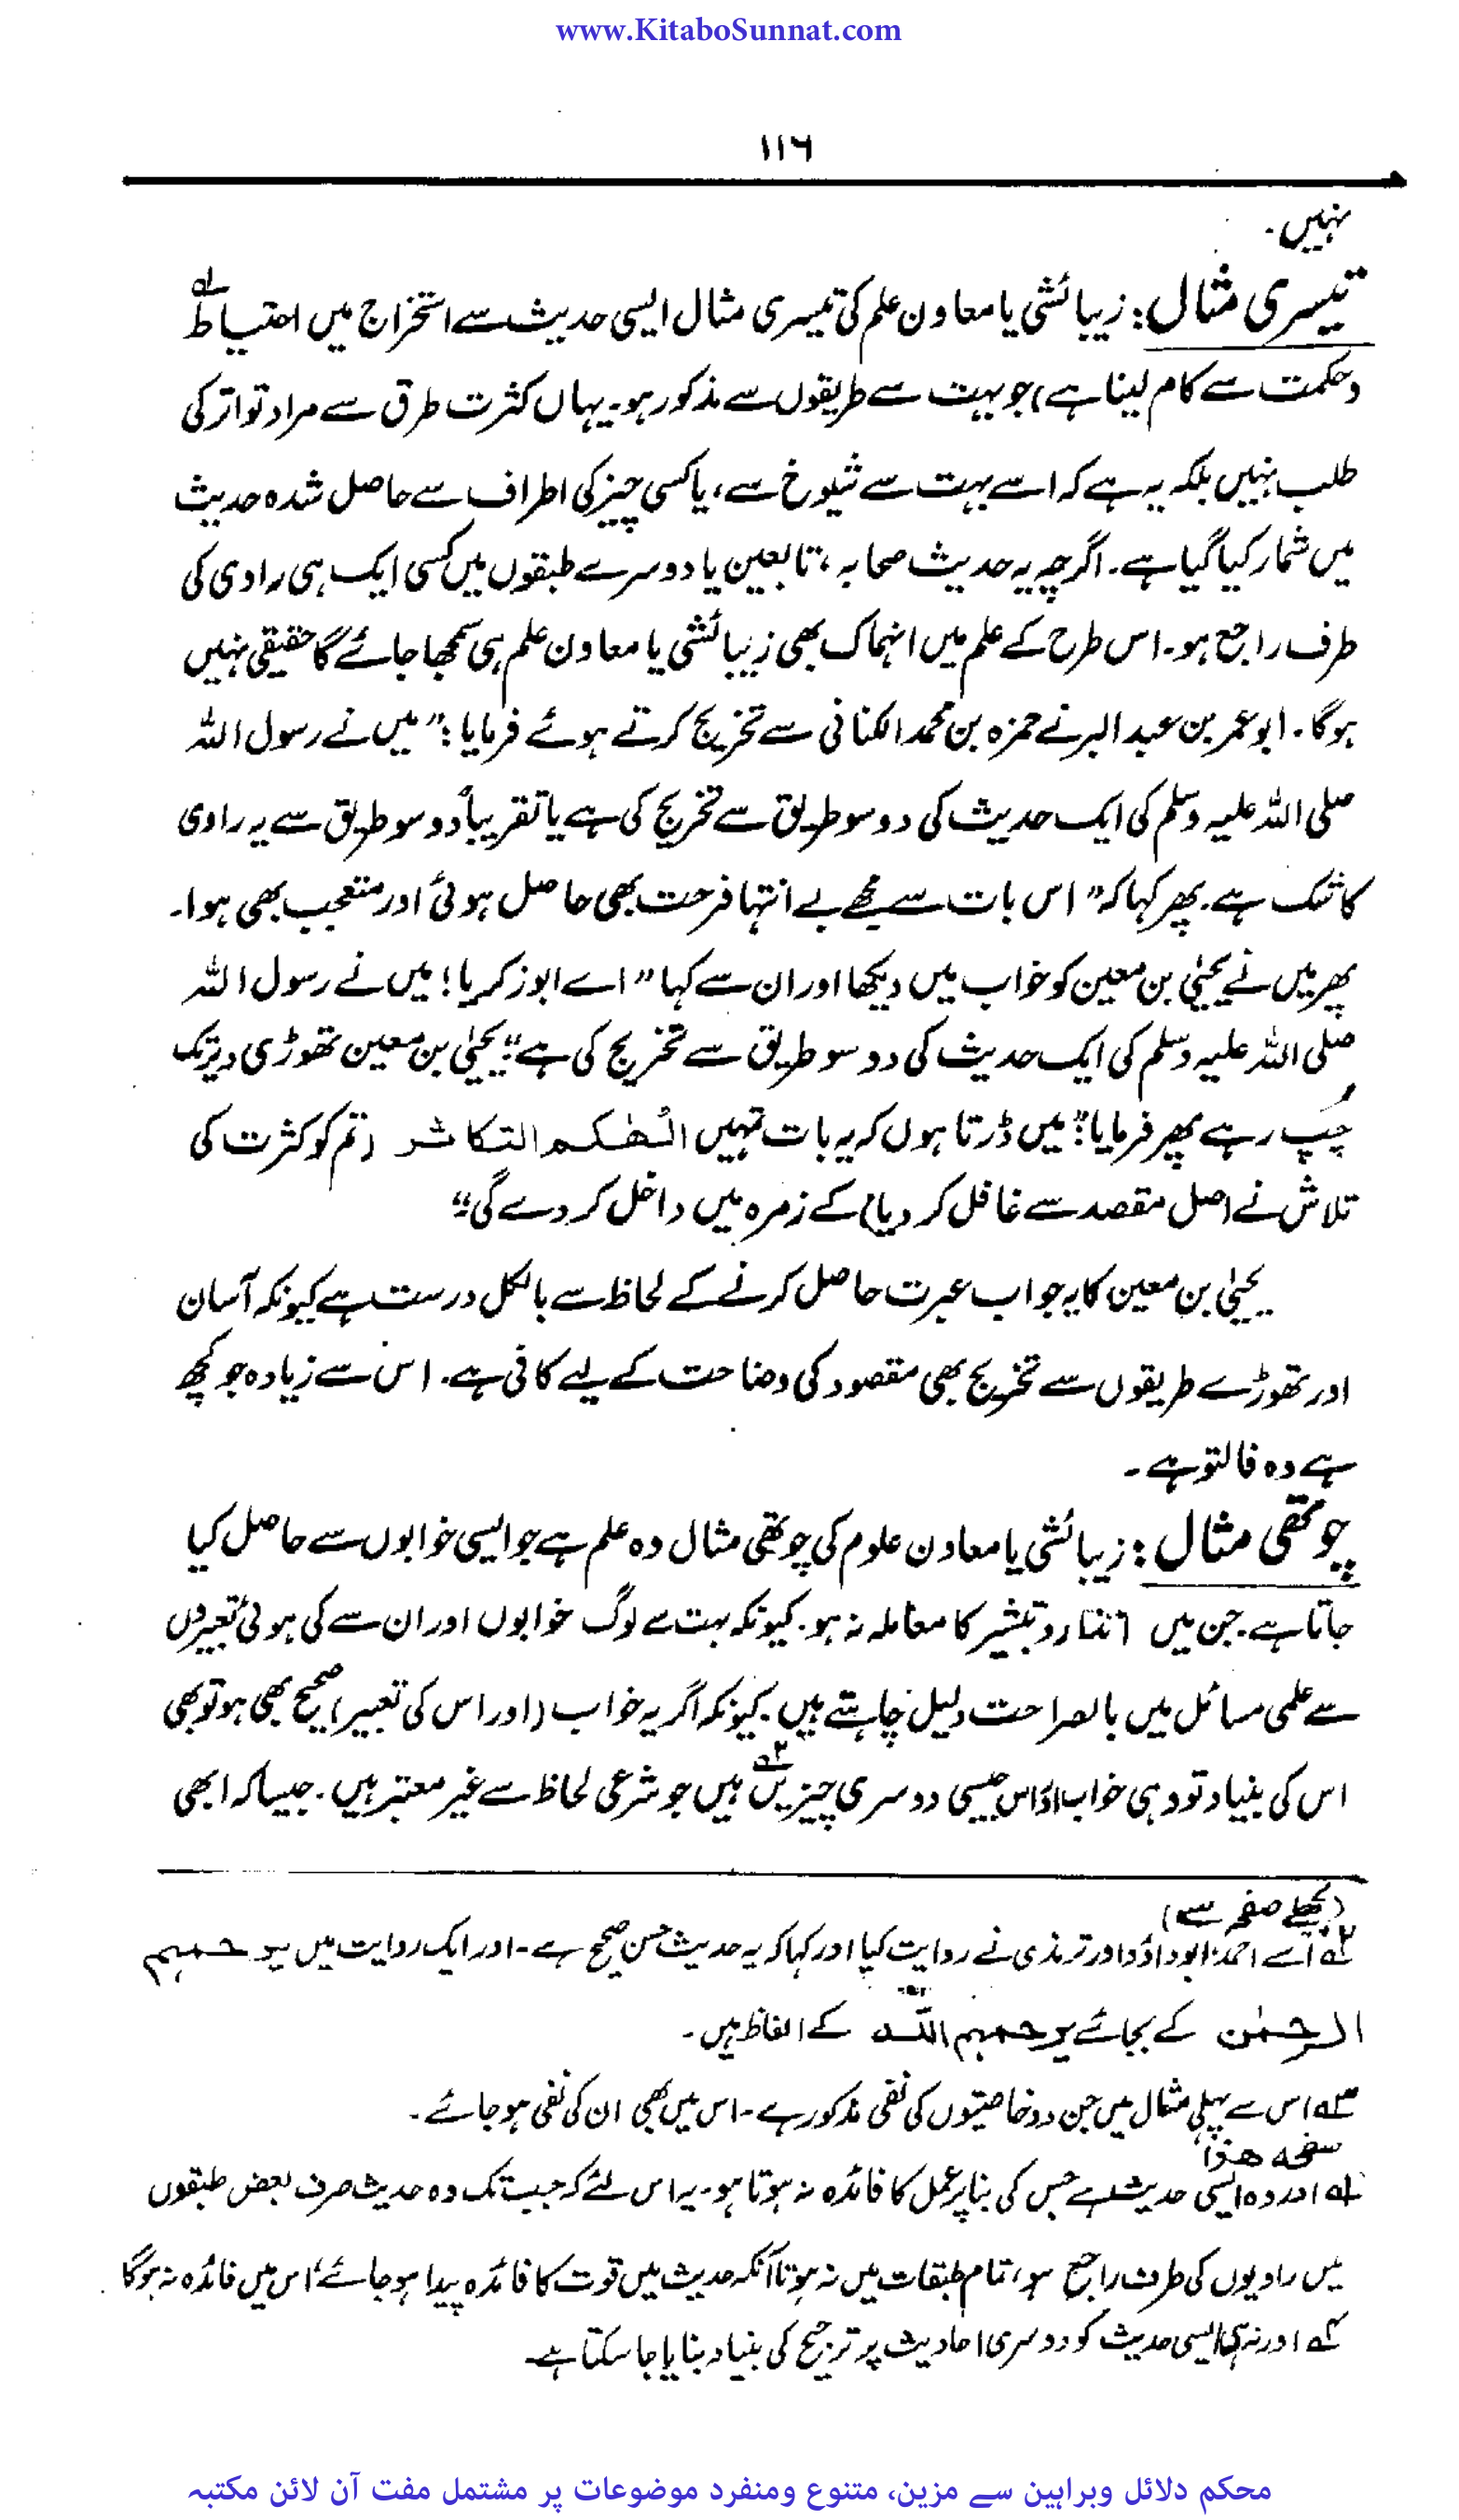 www.KitaboSunnat.com
۱۱۶
نہیں۔
تیسری مثال: زیبائشی یا معاون علم کی تیسری مثال ایسی حدیث سے استخراج میں احتیاط لہ
وحکمت سے کام لینا ہے) جو بہت سے طریقوں سے مذکور ہو۔ یہاں کثرت طرق سے مراد تواتر کی
طلب نہیں بلکہ یہ ہے کہ اسے بہت سے شیوخ سے، یا کسی چیز کی اطراف سے حاصل شدہ حدیث
میں شمار کیا گیا ہے۔ اگرچہ یہ حدیث صحابہ، تابعین یا دوسرے طبقوں میں کسی ایک ہی راوی کی
طرف راجع ہو۔ اس طرح کے علم میں انہماک بھی زیبائشی یا معاون علم ہی سمجھا جائے گا حقیقی نہیں
ہوگا۔ ابوعمر بن عبدالبر نے حمزہ بن محمد الکنانی سے تخریج کرتے ہوئے فرمایا: "میں نے رسول اللہ
صلی اللہ علیہ وسلم کی ایک حدیث کی دوسو طریق سے تخریج کی ہے یا تقریباً دوسو طریق سے یہ راوی
کا شک ہے۔ پھر کہا کہ" اس بات سے مجھے بے انتہا فرحت بھی حاصل ہوئی اور متعجب بھی ہوا۔
پھر میں نے یحییٰ بن معین کو خواب میں دیکھا اور ان سے کہا "اے ابوزکریا! میں نے رسول اللہ
صلی اللہ علیہ وسلم کی ایک حدیث کی دو سو طریق سے تخریج کی ہے" یحییٰ بن معین تھوڑی دیر تک
چُپ رہے پھر فرمایا" میں ڈرتا ہوں کہ یہ بات تمہیں الھٰکم التکاثر (تم کو کثرت کی
تلاش نے اصل مقصد سے غافل کر دیا) کے زمرہ میں داخل کر دے گی"
یحییٰ بن معین کا یہ جواب عبرت حاصل کرنے کے لحاظ سے بالکل درست ہے کیونکہ آسان
اور تھوڑے طریقوں سے تخریج بھی مقصود کی وضاحت کے لیے کافی ہے۔ اس سے زیادہ جو کچھ
ہے وہ فالتو ہے۔
چوتھی مثال: زیبائشی یا معاون علوم کی چوتھی مثال وہ علم ہے جو ایسی خوابوں سے حاصل کیا
جاتا ہے۔ جن میں انذار و تبشیر کا معاملہ نہ ہو۔ کیونکہ بہت سے لوگ خوابوں اور ان سے کی ہوئی تعبیروں
سے علمی مسائل میں بالصراحت دلیل چاہتے ہیں۔ کیونکہ اگر یہ خواب (اور اس کی تعبیر) صحیح بھی ہو تو بھی
اس کی بنیاد تو وہی خواب اور اس جیسی دوسری چیزیں ۲ہ ہیں جو شرعی لحاظ سے غیر معتبر ہیں۔ جیسا کہ ابھی
(پچھلے صفحہ سے)
۲ہ اسے احمد، ابوداؤد اور ترمذی نے روایت کیا اور کہا کہ یہ حدیث حسن صحیح ہے۔ اور ایک روایت میں یرحمہم
الرحمٰن کے بجائے یرحمہم اللہ کے الفاظ ہیں۔
۳ہ اس سے پہلی مثال میں جن دو خاصیتوں کی نفی مذکور ہے۔ اس میں بھی ان کی نفی ہو جائے۔
صفحہ ھذا
لہ اور وہ ایسی حدیث ہے جس کی بنا پر عمل کا فائدہ نہ ہوتا ہو۔ یہ اس لئے کہ جب تک وہ حدیث صرف بعض طبقوں
میں راویوں کی طرف راجع ہو، تمام طبقات میں نہ ہو تاآنکہ حدیث میں قوت کا فائدہ پیدا ہو جائے، اس میں فائدہ نہ ہوگا
۲ہ اور نہ ہی ایسی حدیث کو دوسری احادیث پر ترجیح کی بنیاد بنایا جا سکتا ہے۔
محکم دلائل وبراہین سے مزین، متنوع ومنفرد موضوعات پر مشتمل مفت آن لائن مکتبہ